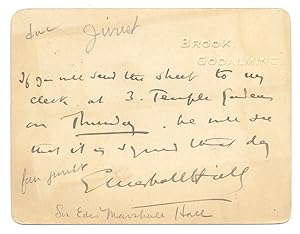 BROOK,
GODALMING.
If you will send the sheet to my
clerk at 3. Temple Gardens
on Thursday he will see
that it is signed that day
E Marshall Hall
Sir Edw Marshall Hall